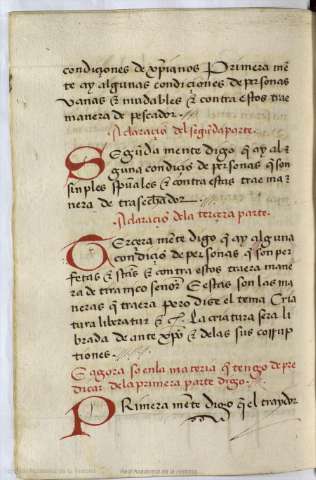 condiçiones de xp̃ianos Primera mẽ
te ay algunas condiçiones de personas
vanas & mudables & contra estos trae
manera de pescador.
Aclaraçio del segũda parte.
Segũda mente digo q̃ ay al
guna condiçiõ de personas q̃ son
sinples spũales & contra estas trae ma
nera de trasechador.
Aclaraçiõ dela terçera parte.
Terçera mẽte digo q̃ ay alguna
condiçiõ de personas q̃ son per
fetas & stãs & contra estos traera mane
ra de tiranico señor. E estas son las ma
neras q̃ traera pero dise el tema Cria
tura liberatur & c̃. La criatura sera li
brada de ante xp̃o & delas sus corrup
tiones.
E agora so en la materia q̃ tengo de pre
dicar dela primera parte digo.
Primera mẽte digo q̃ el traydor
Real Academia de la Historia